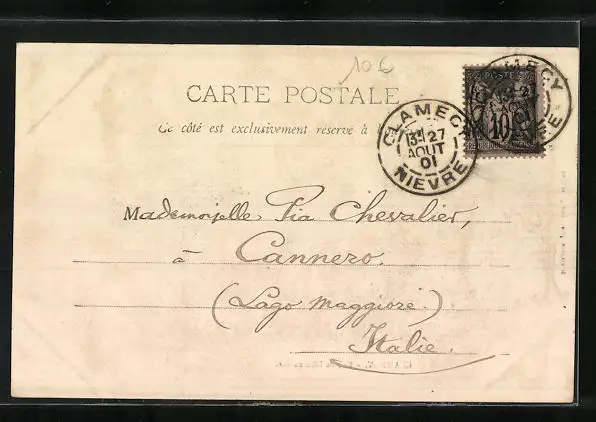 10 €
CARTE POSTALE
Ce côté est exclusivement réservé à
CLAMECY
13E 27
AOUT
01
NIEVRE
POSTE
10
MECY
27
Mademoiselle Pia Chevalier,
à
Cannero.
(Lago Maggiore)
Italie.